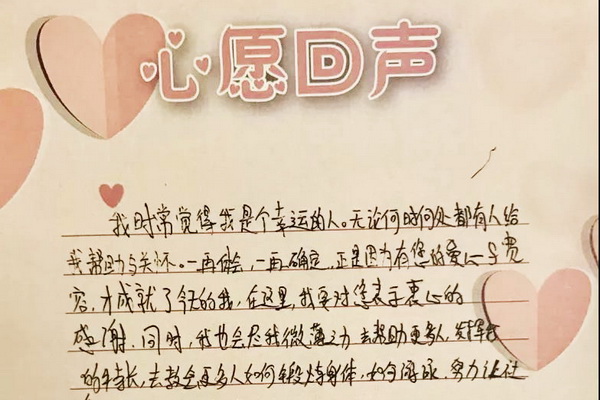 心愿回声
我时常觉得我是个幸运的人。无论何时何处都有人给
我帮助与关怀。一再体会,一再确定,正是因为有您的爱心与
,才成就了今天的我,在这里,我要对您表示衷心的
感谢,同时,我也会尽我微薄之力去帮助更多人,发挥我
的特长,去教会更多人如何锻炼身体,如何游泳,努力让社